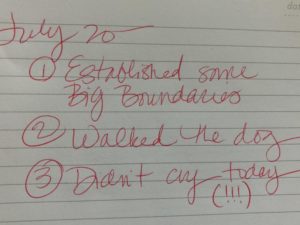 July 20
① Established some
Big Boundaries
② Walked the dog
③ Didn't cry today
(!!!)